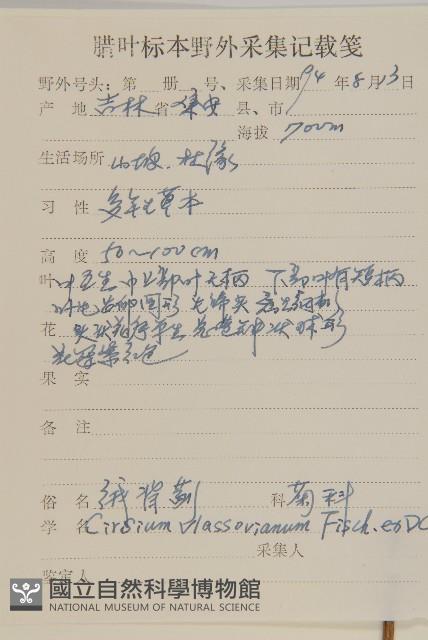 腊叶标本野外采集记载笺
野外号头：第 册 号、采集日期94年8月13日
产 地 吉林省集安县、市
海拔 700m
生活场所 山坡、林缘
习 性 多年生草本
高 度 50~100cm
叶 叶互生 中上部叶无柄 下部叶有短柄
花 头状花序单生
花冠紫红色
果 实
备 注
俗 名 绒背蓟 科 菊科
学 名 Cirsium vlassovianum Fisch. ex DC
采集人
鉴定人
國立自然科學博物館
NATIONAL MUSEUM OF NATURAL SCIENCE